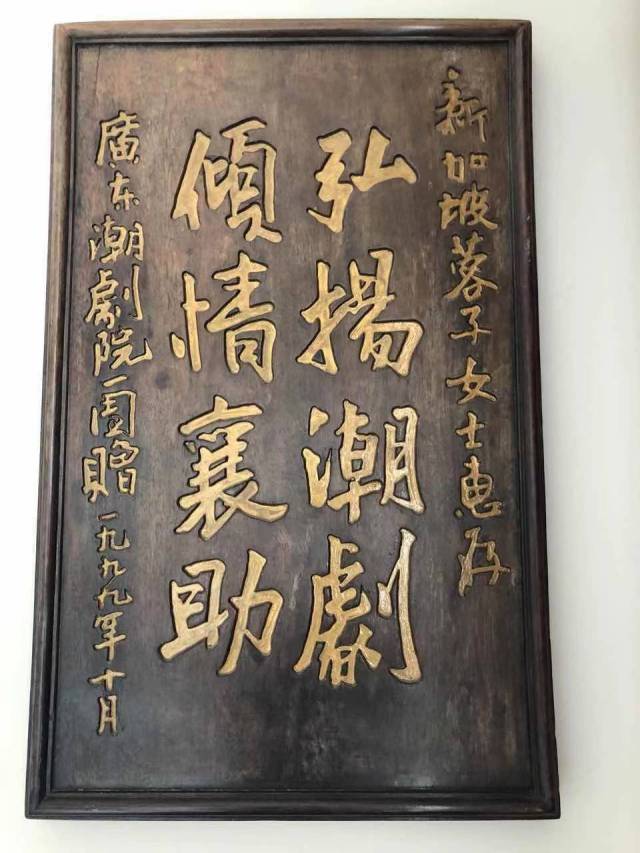 新加坡蓉子女士惠存
弘揚潮劇
傾情襄助
廣东潮劇院一團贈一九九九年十月